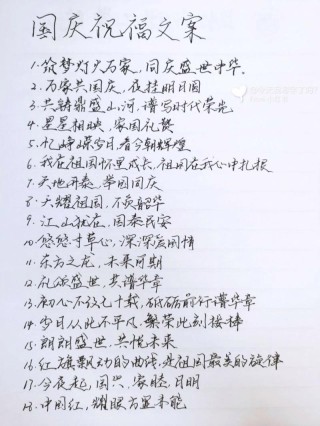 国庆祝福文案
1.筑梦灯火万家，同庆盛世中华.
2.万家共国庆，夜挂明月圆
3.共铸鼎盛山河，谱写时代荣光
4.星星相映，家国礼赞
5.忆峥嵘岁月，看今朝辉煌
6.我在祖国怀里成长，祖国在我心中扎根
7.天地开泰，举国同庆
8.光耀祖国，不负韶华
9.江山犹在，国泰民安
10.悠悠寸草心，深深爱国情
11.东方之龙，未来可期
12.礼颂盛世，共谱华章
13.初心不改七十载，砥砺前行谱华章
14.岁月从此不平凡，繁荣此刻接棒
15.朗朗盛世，共悦未来
16.红旗飘动的曲线，是祖国最美的旋律
17.今夜起，国兴，家睦，月明
18.中国红，耀眼方显本色